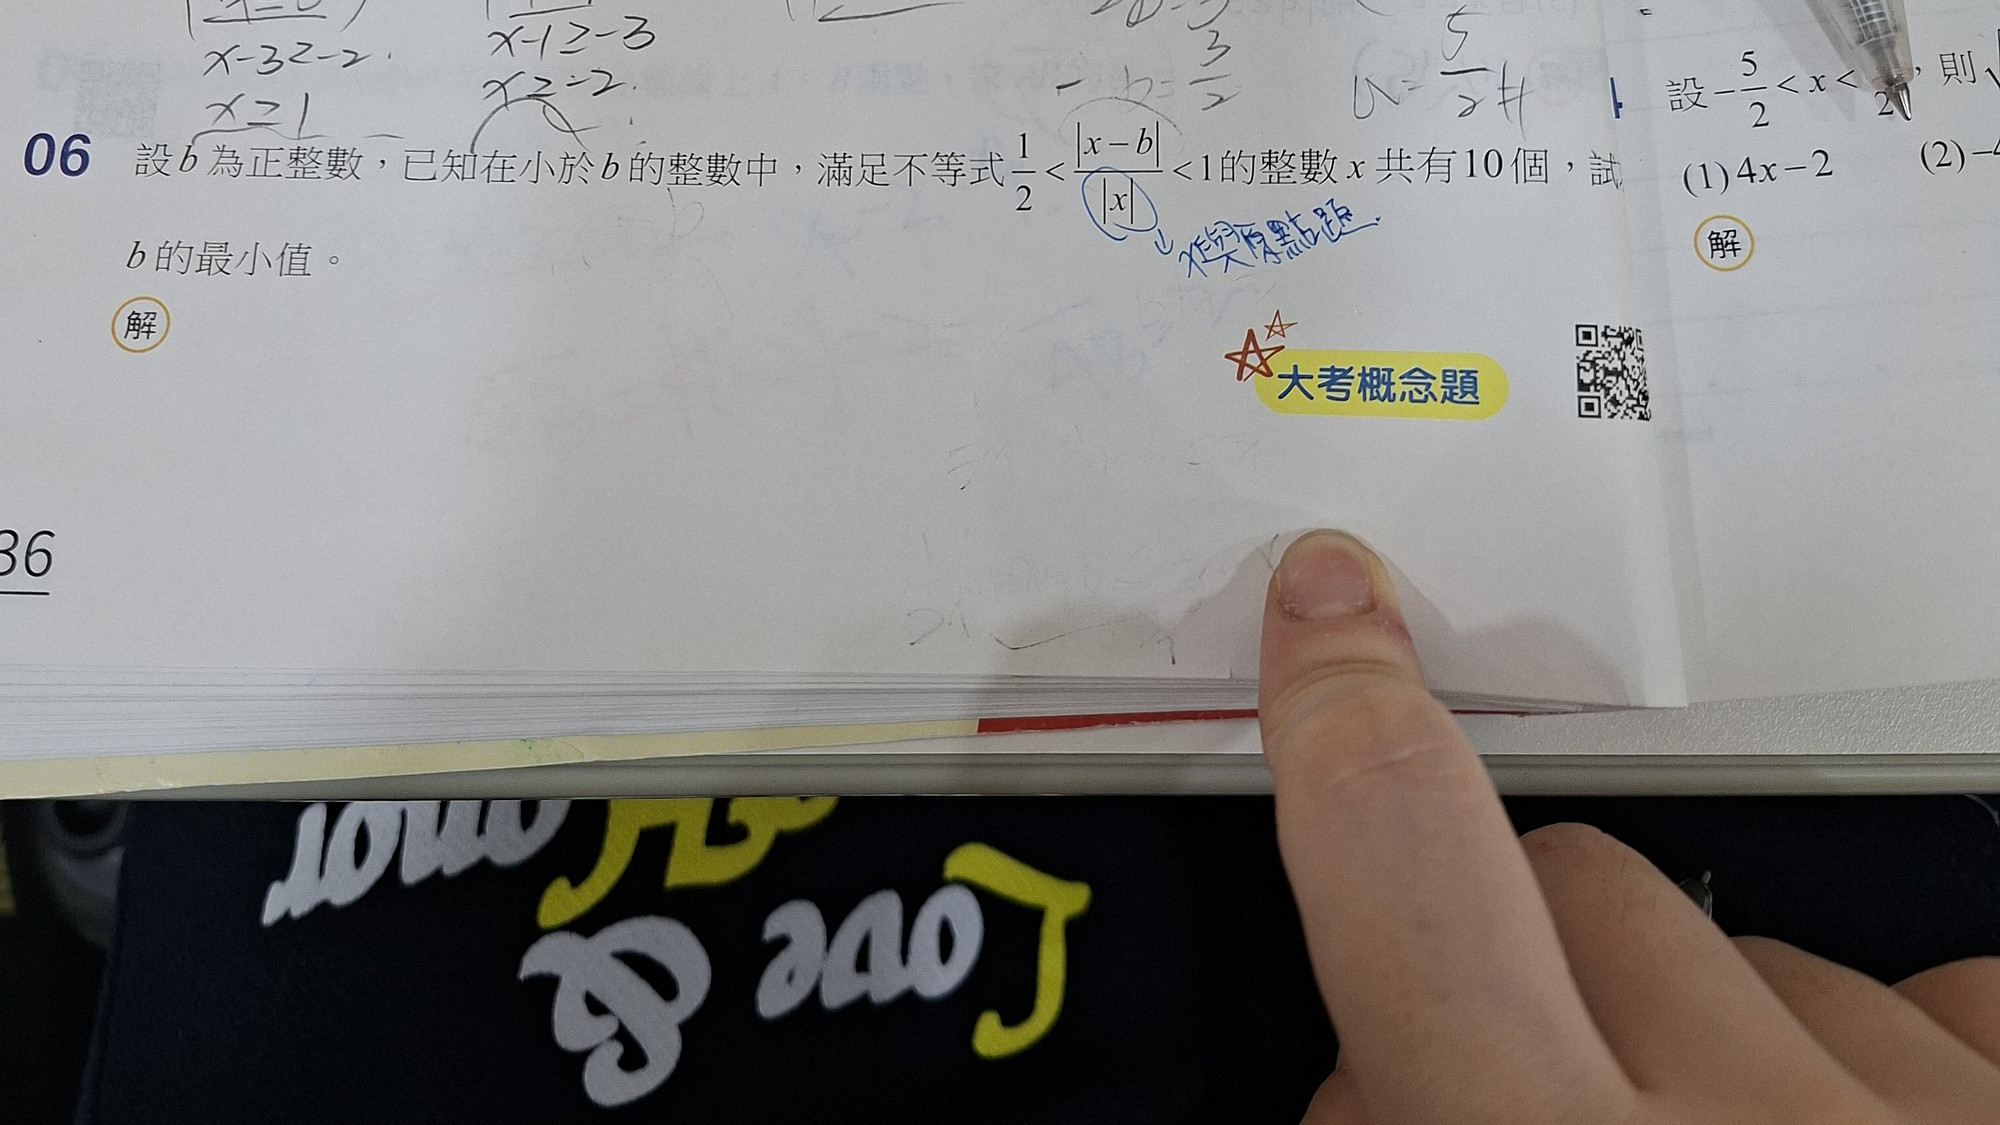 x-3≥-2
x-1≥-3
3
5
x≥1
x≥-2
b=3/2
a=5/2#
06 設b為正整數，已知在小於b的整數中，滿足不等式 1/2 < |x-b|/|x| < 1 的整數 x 共有10個，試
x與原點距
b的最小值。
解
大考概念題
36
設 -5/2 < x <
2
，則√
(1) 4x-2
(2) -4
解
Honor
Love &